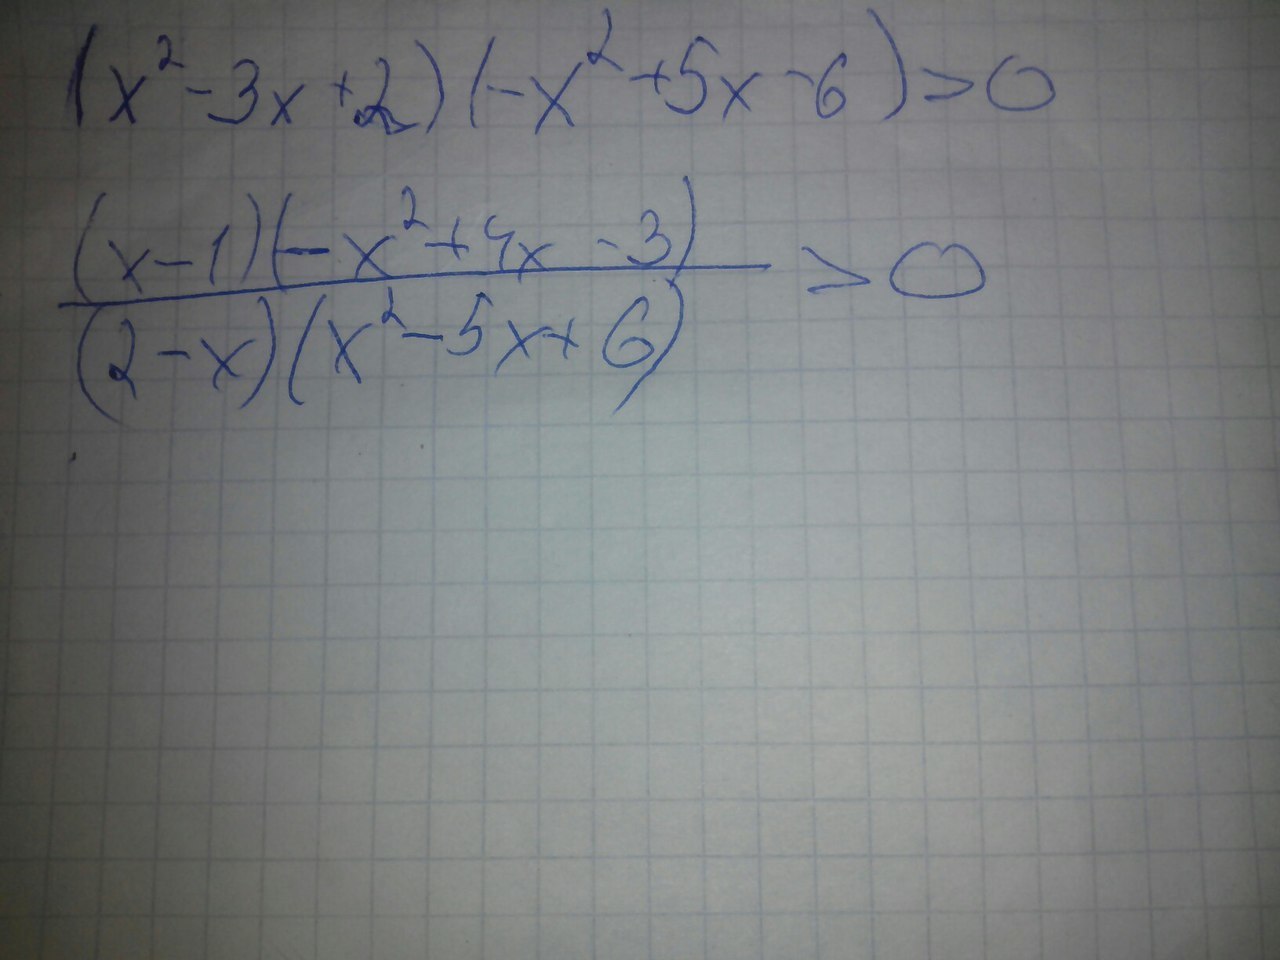 (x²-3x+2)(-x²+5x-6)>0
(x-1)(-x²+4x-3)
(2-x)(x²-5x+6) >0